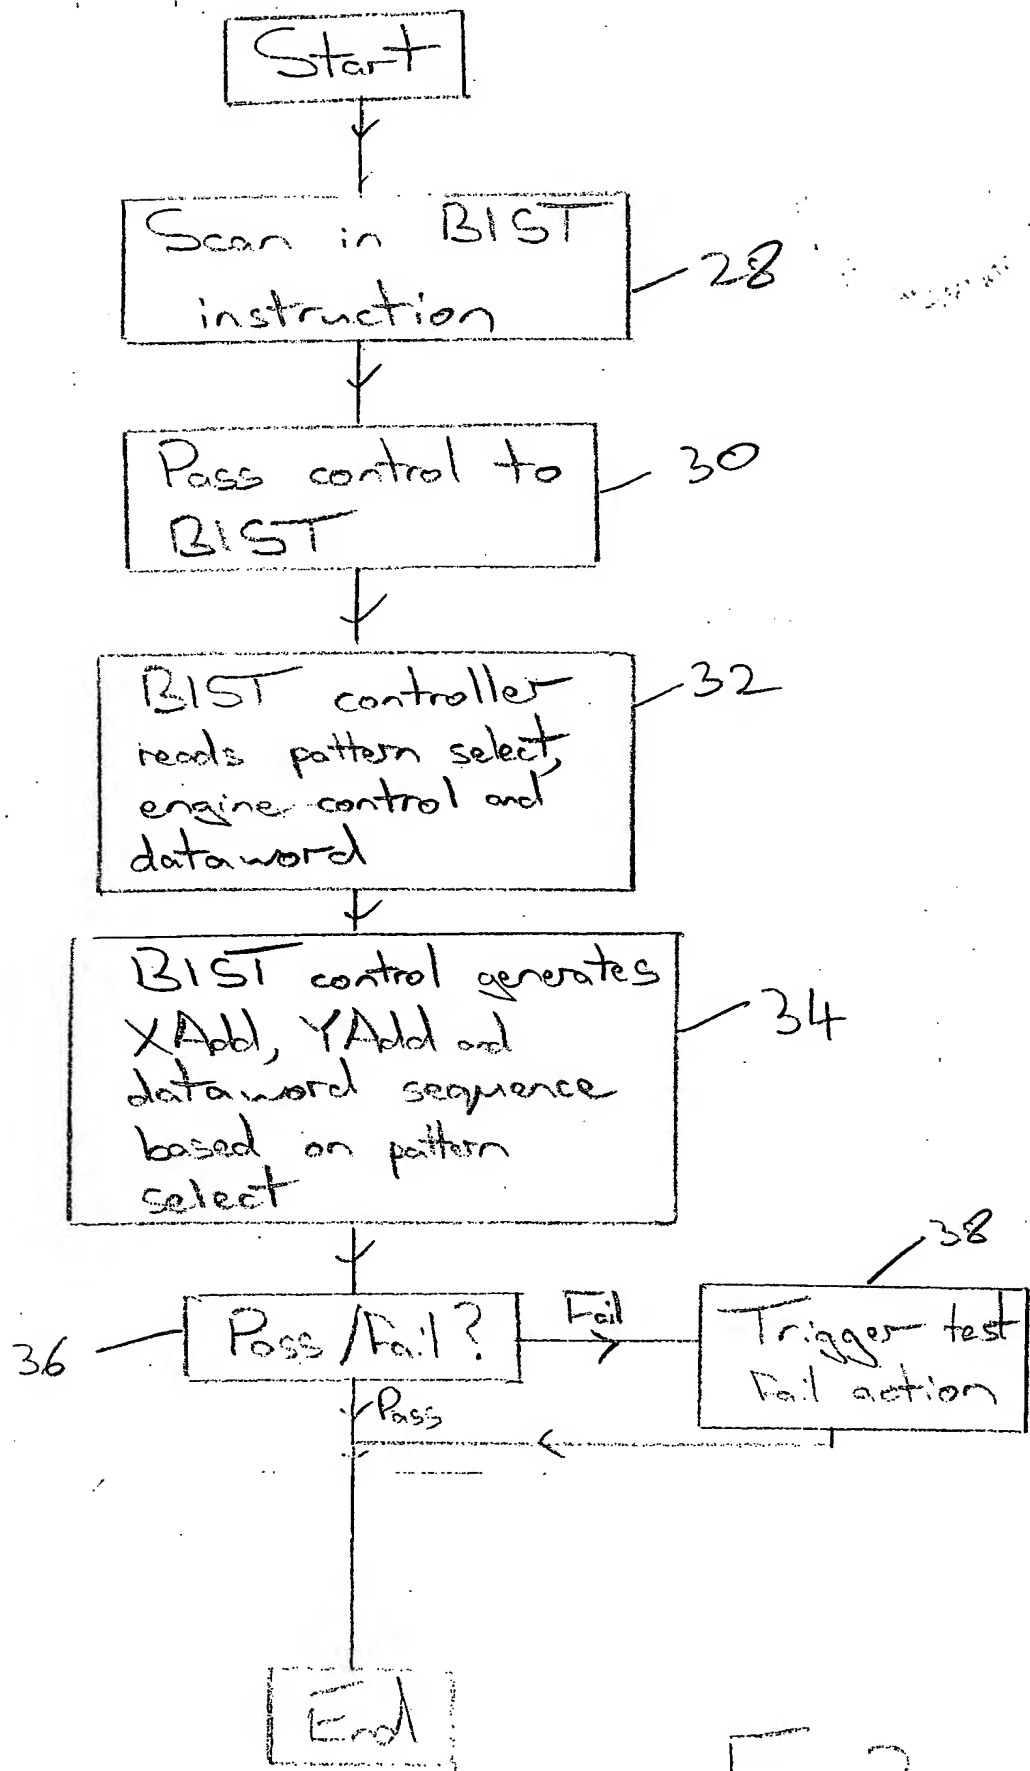 Start
Scan in BIST
instruction
28
Pass control to
BIST
30
BIST controller
reads pattern select,
engine control and
dataword
32
BIST control generates
XAdd, YAdd and
dataword sequence
based on pattern
select
34
Pass/Fail?
36
Fail
Trigger test
Fail action
38
Pass
End